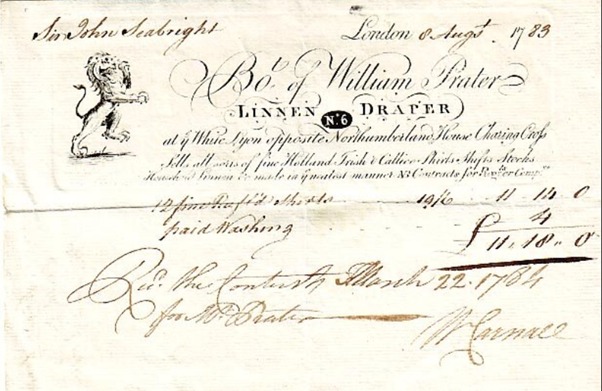 Sir John Seabright London 8 Augst. 1783
Bot. of William Prater
LINNEN No. 6 DRAPER
at ye White Lyon opposite Northumberland House Charing Cross
Sells all sorts of fine Holland Irish & Callico Shirts Shifts Stocks
Household Linnen &c made in ye neatest manner NB Contracts for
12 fine Shirts 19/6 11 - 14 0
paid Washing 4
£ 11 - 18 - 0
Recd. the Contents March 22. 1784
for Mr. Prater